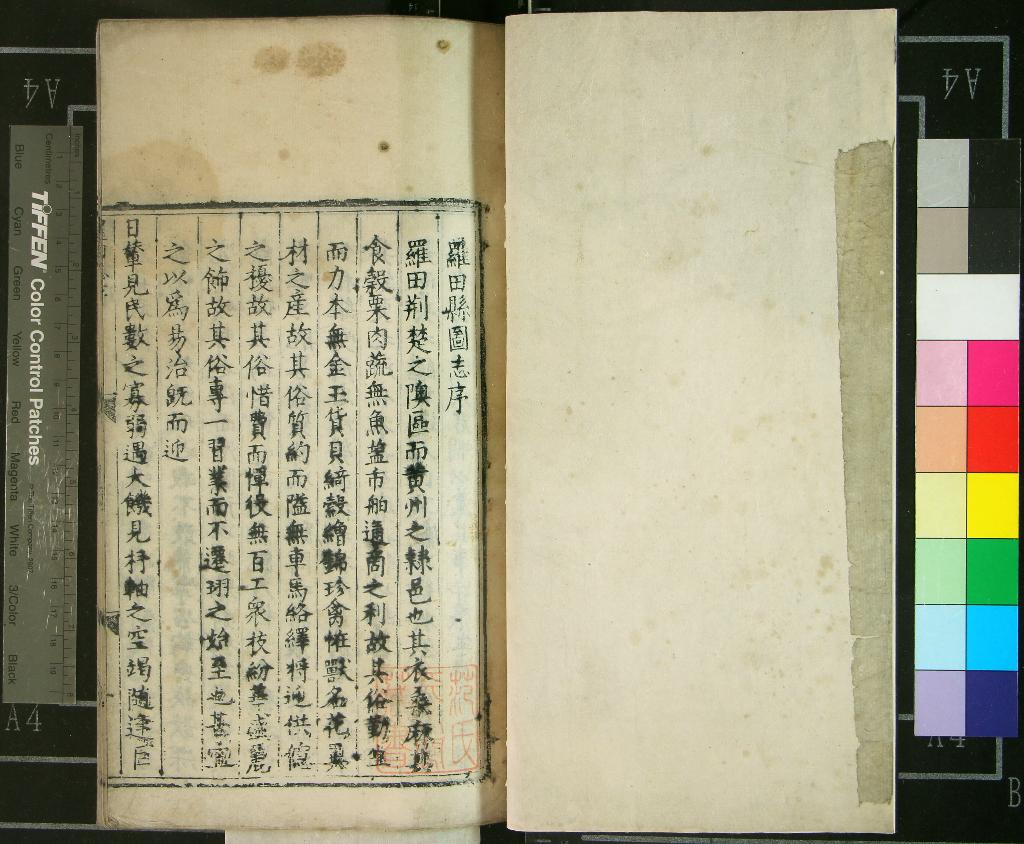 羅田縣圖志序
羅田荆楚之隩區而黄州之隸邑也其衣桑麻其
食穀粟肉蔬無魚鹽市舶通商之利故其俗勤生
而力本無金玉貨貝綺縠繒錦珍禽恠獸名花異
材之産故其俗質約而隘無車馬絡繹將迎供億
之擾故其俗惜費而憚役無百工衆技紛華盛麗
之飾故其俗專一習業而不遷珝之始至也甚
之以爲易治既而迎
日輦見民數之寡弱遇大饑見杼軸之空竭隨逢
A4
A4
A4
A4
B
TIFFEN Color Control Patches
Inches
Centimetres
Blue
Cyan
Green
Yellow
Red
Magenta
White
3/Color
Black